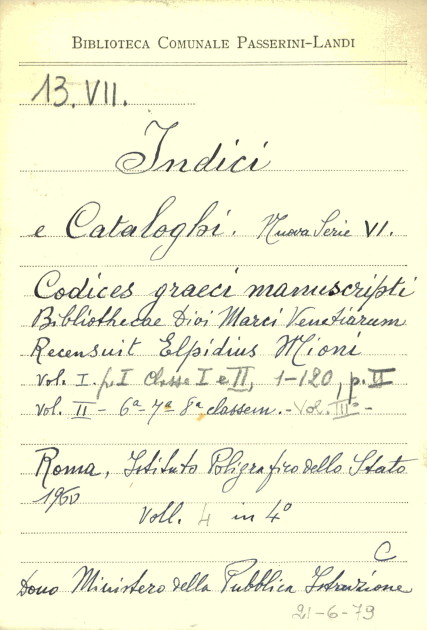 BIBLIOTECA COMUNALE PASSERINI-LANDI
13. VII.
Indici
e Cataloghi. Nuova Serie VI.
Codices graeci manuscripti
Bibliothecae Divi Marci Venetiarum
Recensuit Elpidius Mioni
Vol. I. p. I Classe I e II, 1-120, p. II
Vol. II - 6ª- 7ª 8ª classem. - Vol. III° -
Roma, Istituto Poligrafico dello Stato
1960
Voll. 4 in 4°
C
Dono Ministero della Pubblica Istruzione
21-6-79